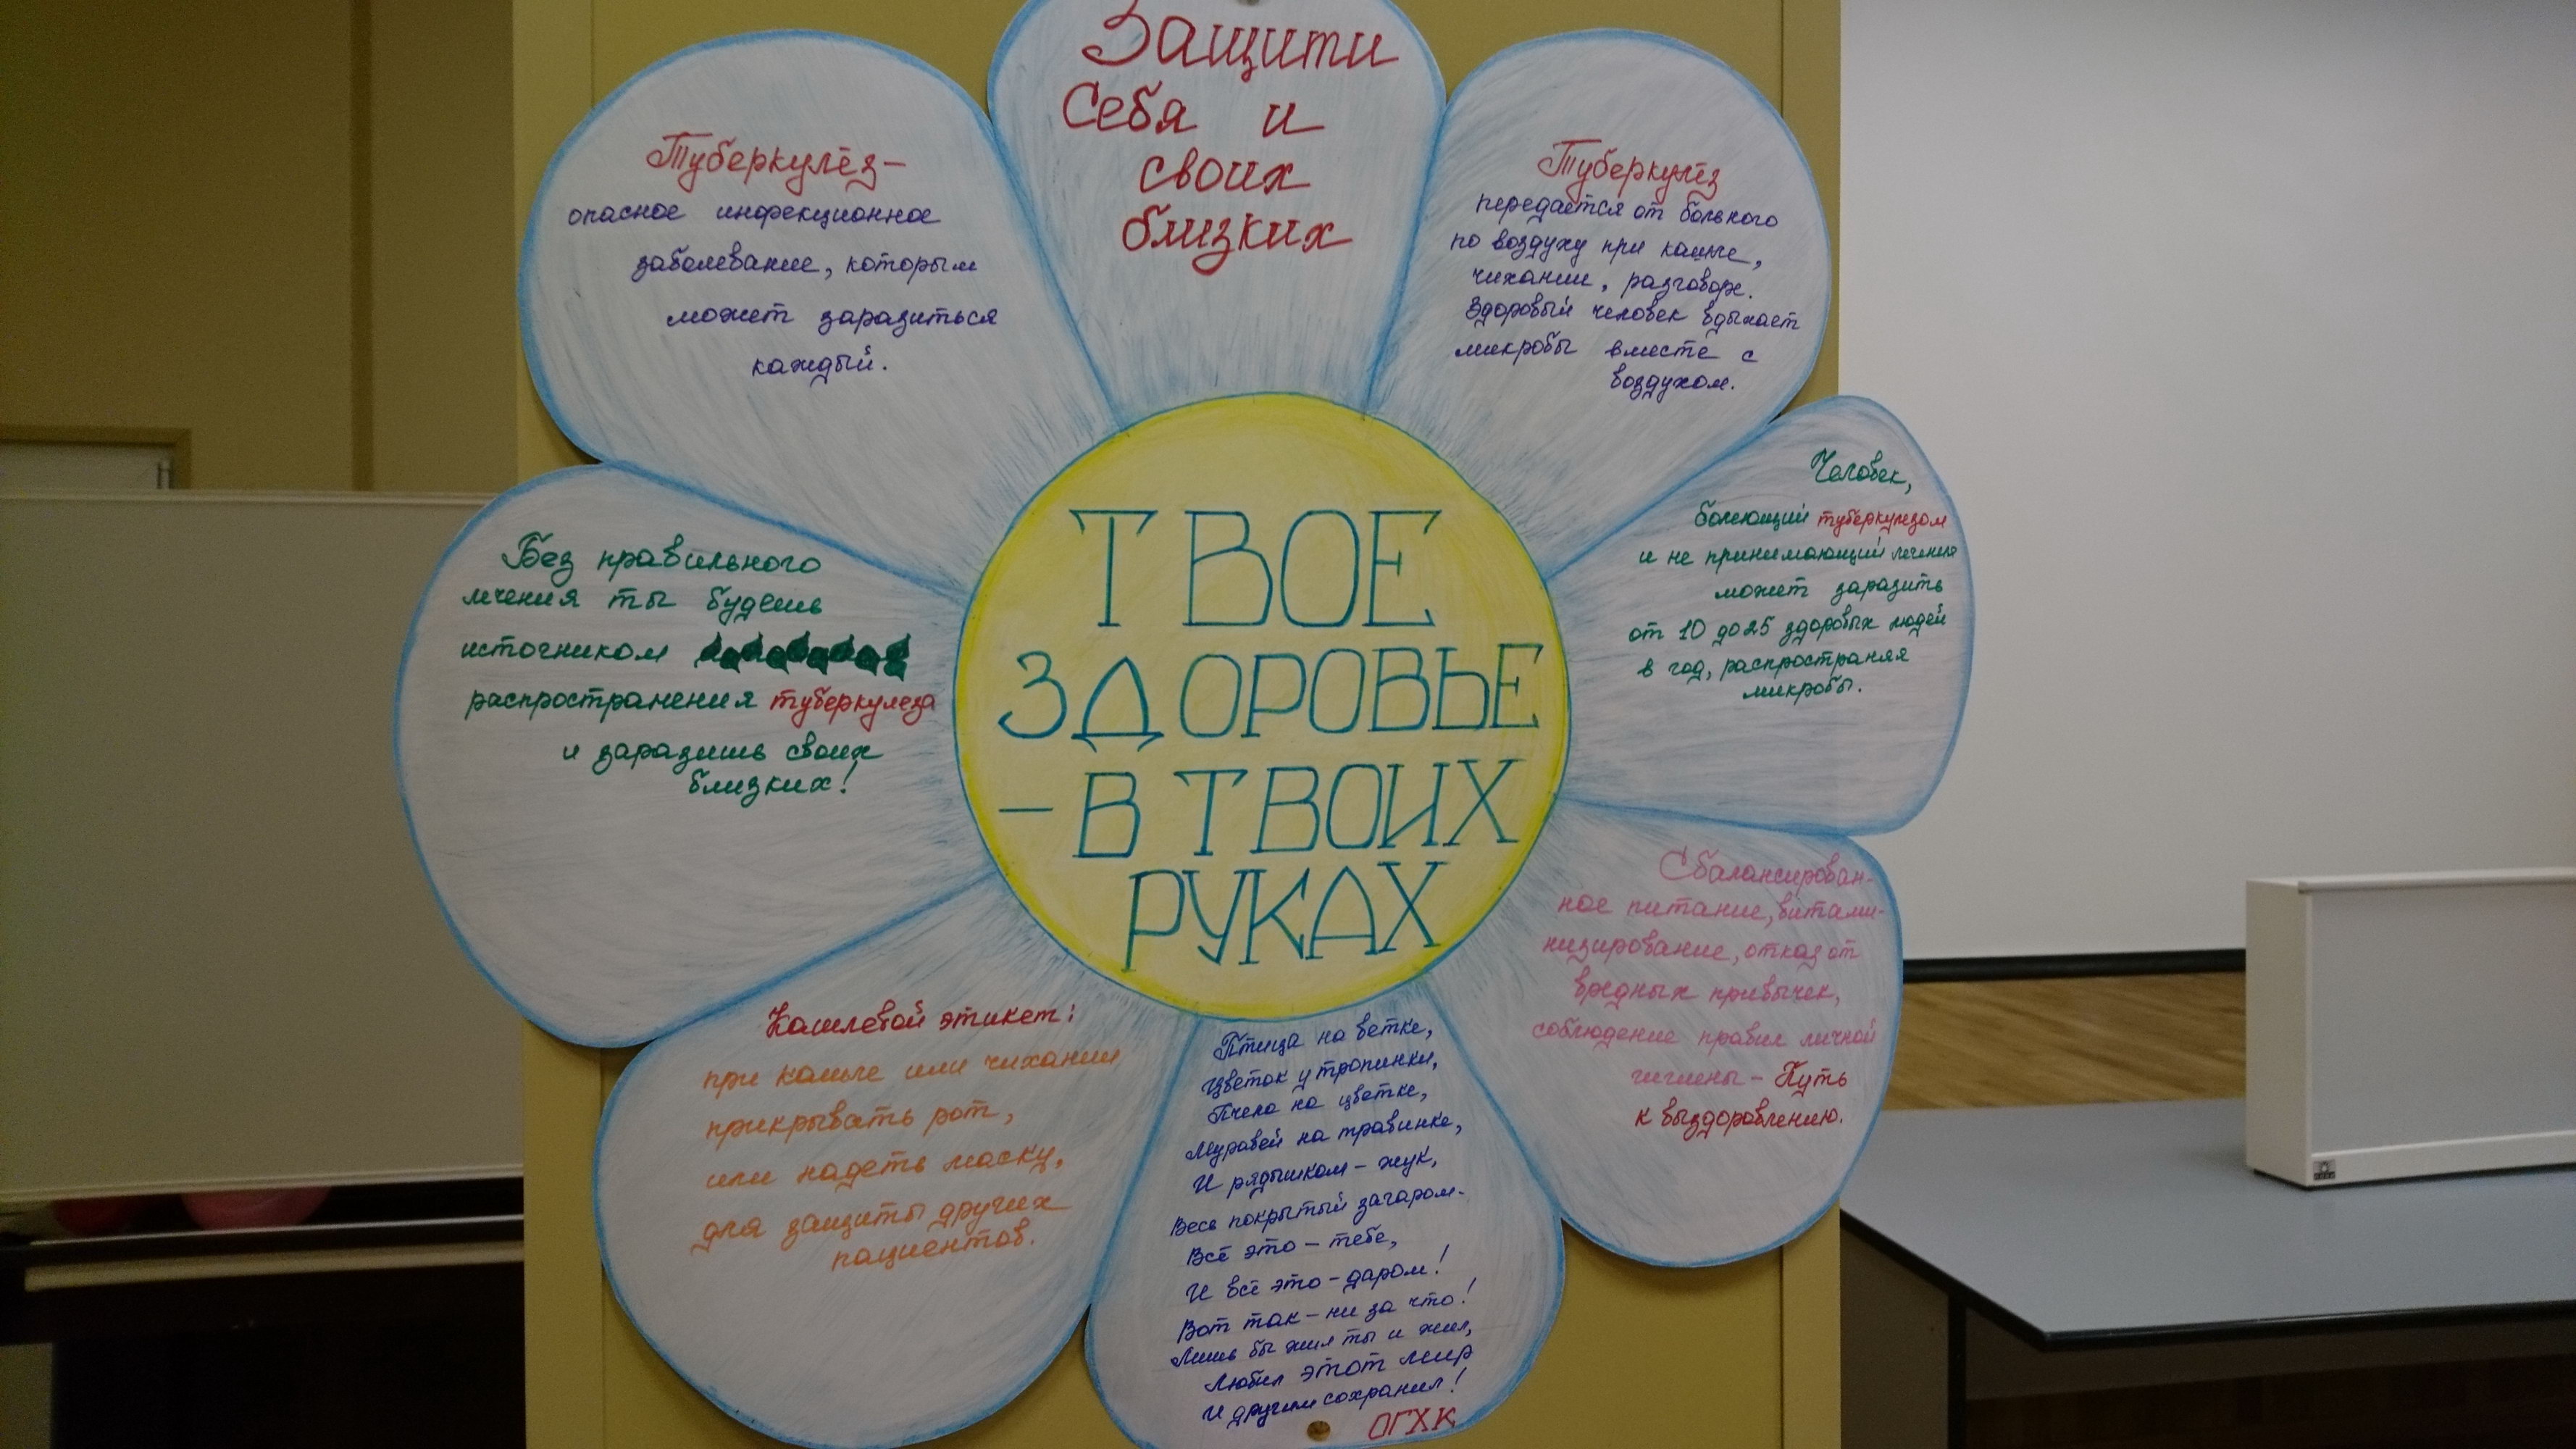 Защити
Себя и
своих
близких
Туберкулёз-
опасное инфекционное
заболевание, которым
может заразиться
каждый.
Туберкулёз
передаётся от больного
по воздуху при кашле,
чихании, разговоре.
Здоровый человек вдыхает
микробы вместе с
воздухом.
Человек,
болеющий туберкулезом
и не принимающий лечения
может заразить
от 10 до 25 здоровых людей
в год, распространяя
микробы.
Сбалансирован-
ное питание, витами-
низирование, отказ от
вредных привычек,
соблюдение правил личной
гигиены - Путь
к выздоровлению.
Птица на ветке,
Цветок у тропинки,
Пчела на цветке,
Муравей на травинке,
И рядышком - жук,
Весь покрытый загаром-
Всё это - тебе,
И всё это - даром!
Вот так - ни за что!
Лишь бы жил ты и жил,
Любил этот мир
И другим сохранил!
ОГХК
Кашлевой этикет:
при кашле или чихании
прикрывать рот,
или надеть маску,
для защиты других
пациентов.
Без правильного
лечения ты будешь
источником
распространения туберкулеза
и заразишь своих
близких!
ТВОЕ
ЗДОРОВЬЕ
- В ТВОИХ
РУКАХ